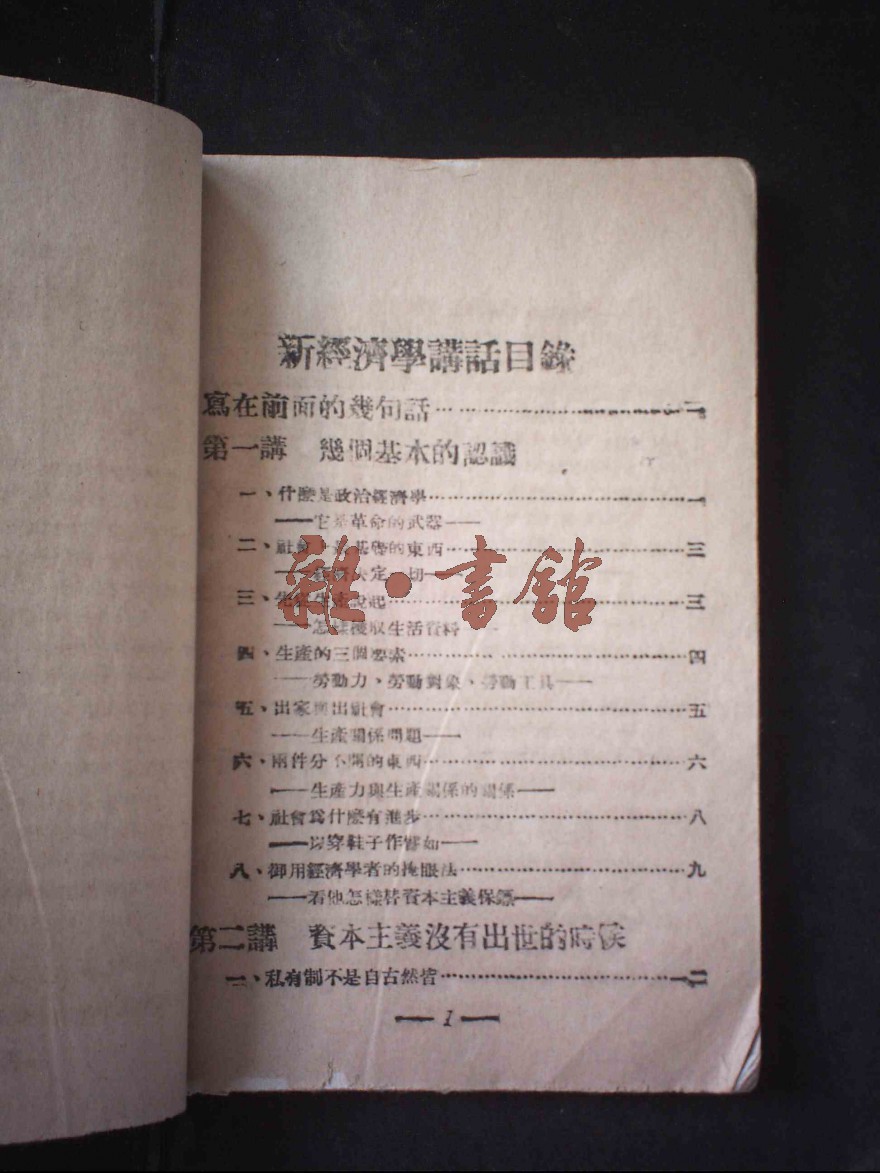 新經濟學講話目錄
寫在前面的幾句話……一
第一講 幾個基本的認識
一、什麼是政治經濟學……一
——它是革命的武器——
二、社會 基礎的東西……三
決定一切——
三、先從生 說起……三
——怎樣獲取生活資料——
四、生產的三個要素……四
——勞動力、勞動對象、勞動工具——
五、出家與出社會……五
——生產關係問題——
六、兩件分不開的東西……六
——生產力與生產關係的關係——
七、社會爲什麼有進步……八
——以穿鞋子作譬如——
八、御用經濟學者的掩眼法……九
——看他怎樣替資本主義保鏢——
第二講 資本主義沒有出世的時候
一、私有制不是自古然皆……一二
— 1 —
雜·書館